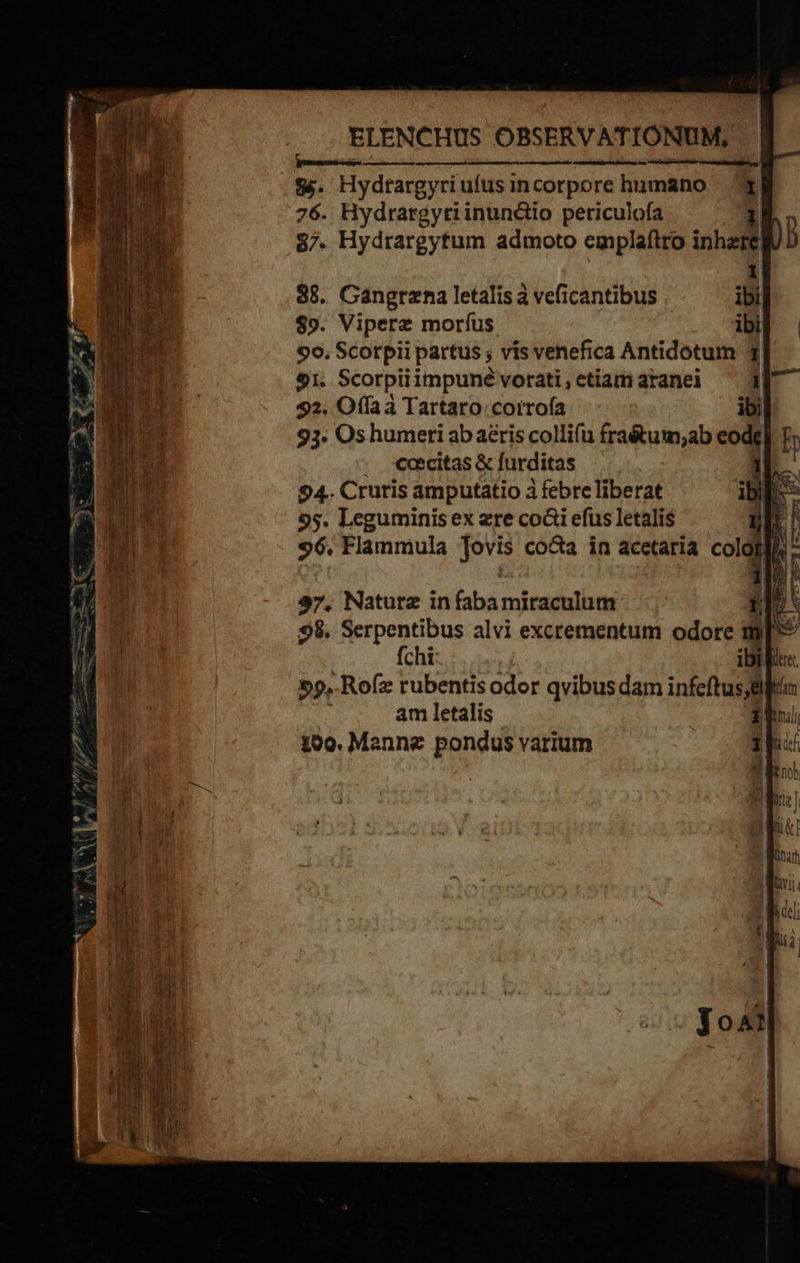 ELENCHUS OBSERVATIONUM,
85. Hydrargyri uſus in corpore humano 1
76. Hydrargyri inunctio periculoſa 1
87. Hydrargyrum admoto emplaſtro inhære
1
88. Gangræna letalis à veſicantibus ibi
89. Viperæ morſus ibi
90. Scorpii partus; vis venefica Antidotum 1
91. Scorpii impunè vorati, etiam aranei 1
92. Oſſa à Tartaro corroſa ibi
93. Os humeri ab aëris colliſu fractum, ab eode
cœcitas & ſurditas 1
94. Cruris amputatio à febre liberat ibi
95. Leguminis ex ære cocti eſus letalis 1
96. Flammula Jovis cocta in acetaria color
1
97. Naturæ in faba miraculum 1
98. Serpentibus alvi excrementum odore m
ſchi ibi
99. Roſæ rubentis odor qvibusdam infeſtus, eti
am letalis 1
100. Mannæ pondus varium 1
Joan